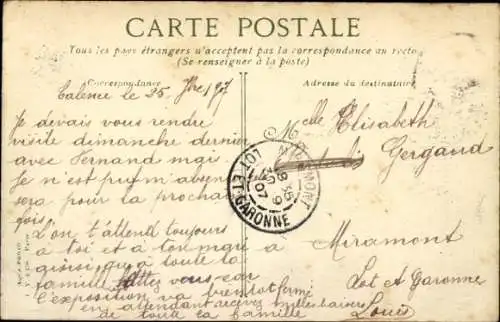 CARTE POSTALE
Tous les pays étrangers n'acceptent pas la correspondance au recto
(Se renseigner à la poste)
Correspondance
Adresse du destinataire
Talence le 25 7bre 1907
je devais vous rendre
visite dimanche dernier
avec Fernand mais
je n'est pu m'absen
sera pour la prochai
fois
L'on t'attend toujours
a toi et à ton
ainsi qu'a toute la
famille vous car
L'exposition va bientot fermé
en attendant recevez milles baisers
de toute ta famille
Louis
Melle Elisabeth
Gergaud
Miramont
Lot et Garonne
MIRAMONT
8 35
30 9
07
LOT-ET-GARONNE